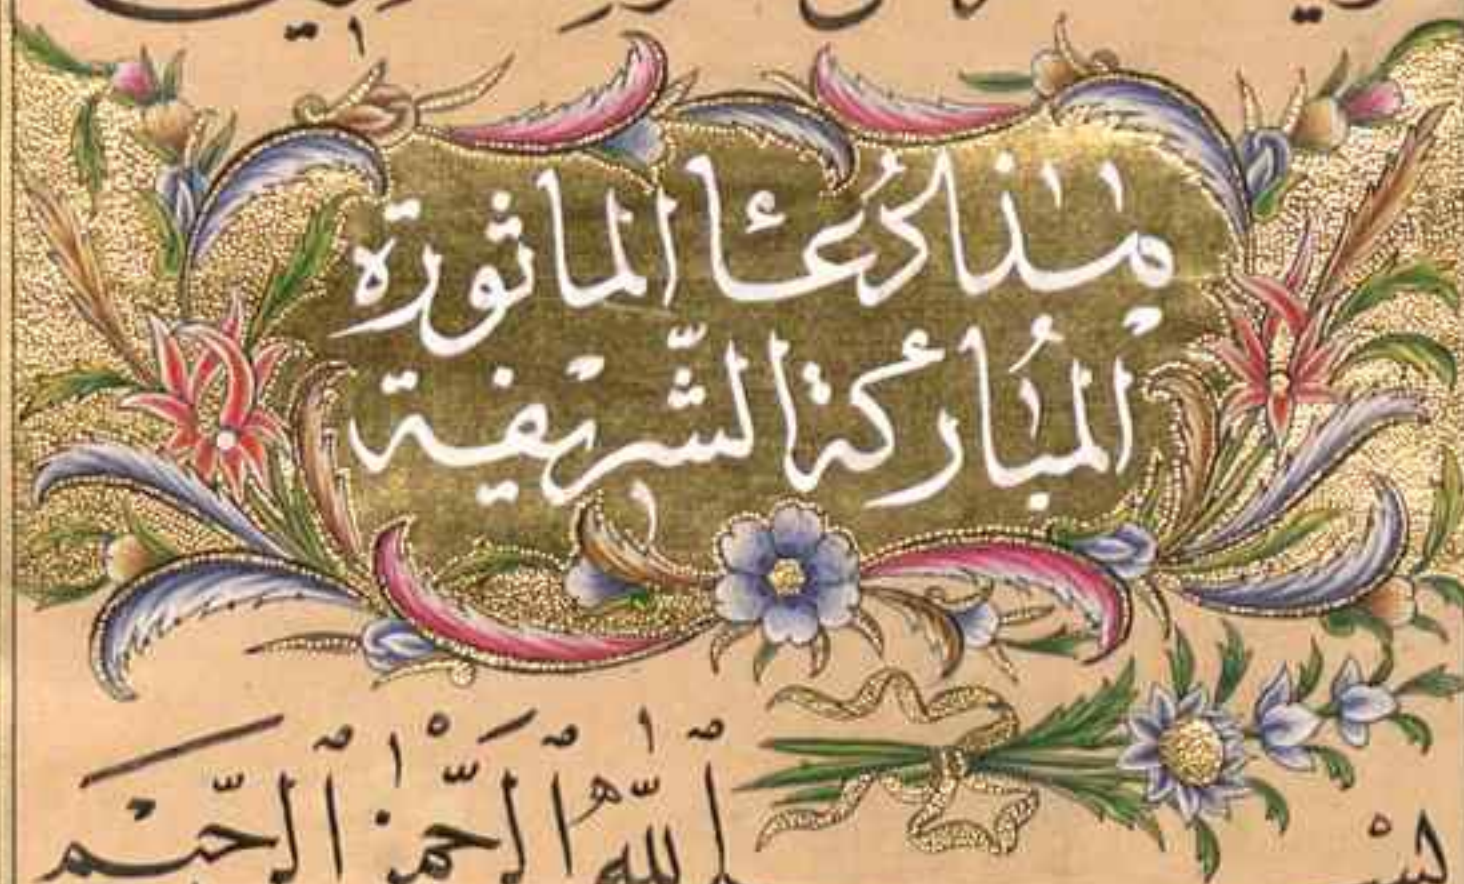 هٰذا دُعَٔا الماثورة
المُبارَكة الشّريفة
بسْم اللّٰهِ ٱلرَّحْمٰنِ ٱلرَّحيم